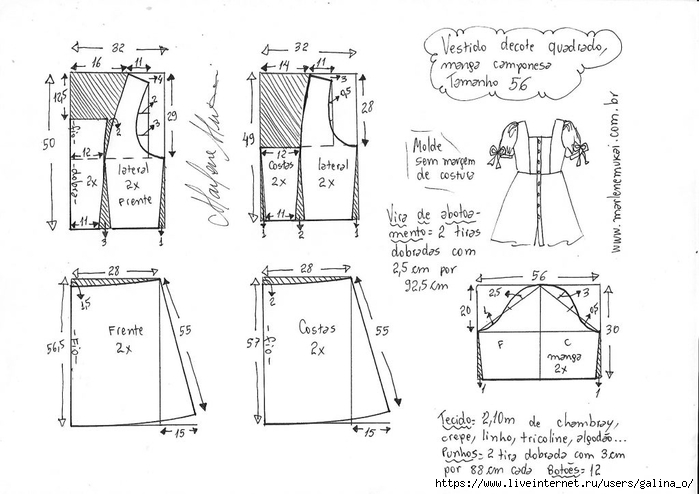 Vestido decote quadrado,
manga camponesa
Tamanho 56
32
16
11
4
12,5
2
3
2
29
50
fio
12
dobra
2x
lateral
2x
Frente
11
3
1
32
14
11
3
0,5
28
49
12
Costas
2x
lateral
2x
11
1
2
1
Molde
sem margem
de costura
Vira de abotoa-
mento = 2 tiras
dobradas com
2,5 cm por
92,5 cm
www.marlenemukai.com.br
28
1,5
56,5
Fio
Frente
2x
55
15
28
2
57
Fio
Costas
2x
55
15
56
2,5
3
20
1
0,5
30
F
C
manga
2x
1
1
Tecido = 2,10m de chambray,
crepe, linho, tricoline, algodão...
Punhos = 2 tira dobrada com 3cm
por 88 cm cada Botões = 12
https://www.liveinternet.ru/users/galina_o/